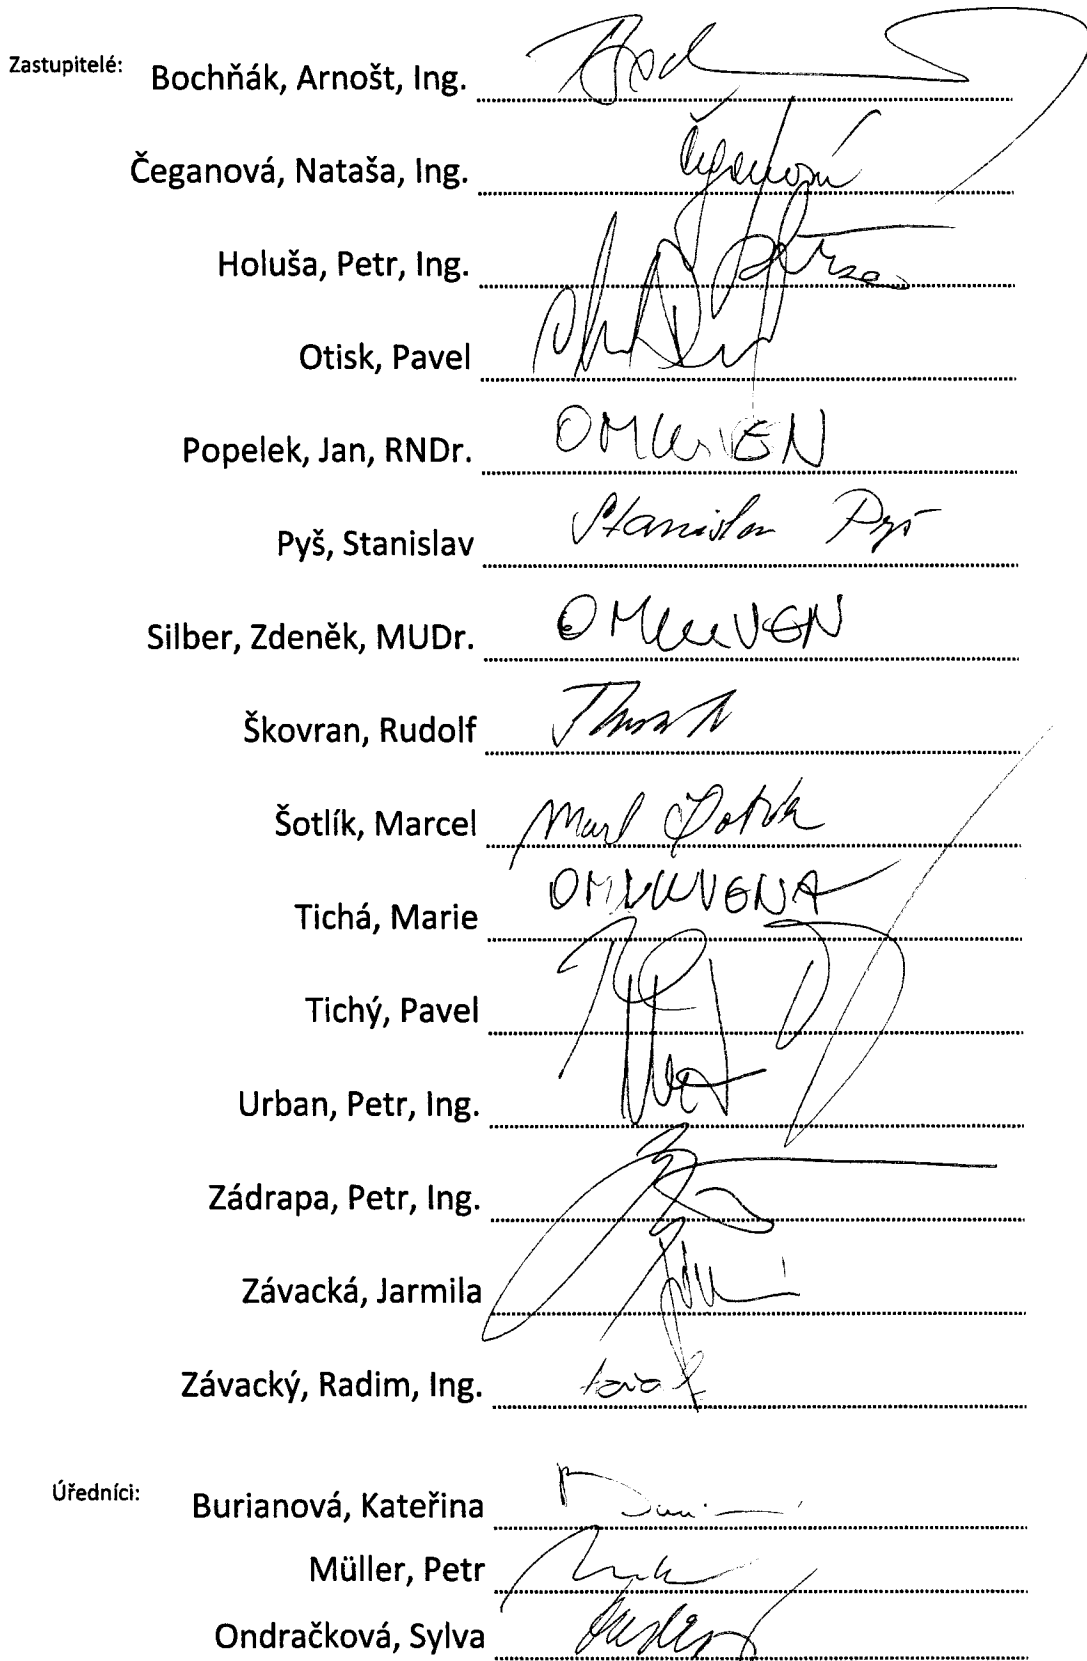 Zastupitelé: Bochňák, Arnošt, Ing.
Čeganová, Nataša, Ing. Čeganová
Holuša, Petr, Ing.
Otisk, Pavel
Popelek, Jan, RNDr. OMLUVEN
Pyš, Stanislav Stanislav Pyš
Silber, Zdeněk, MUDr. OMLUVEN
Škovran, Rudolf
Šotlík, Marcel
Tichá, Marie OMLUVENA
Tichý, Pavel
Urban, Petr, Ing.
Zádrapa, Petr, Ing.
Závacká, Jarmila
Závacký, Radim, Ing.
Úředníci: Burianová, Kateřina
Müller, Petr
Ondračková, Sylva